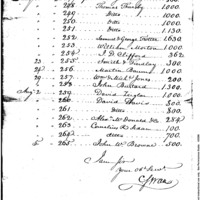 " " 248. Thomas Thursby 1000.
" " 249. Ditto 1000.
" " 250. Ditto 1000.
" " 251. Ditto 1.130.
" " 252. Samuel & George Trotter 1.630
" " 253. William Morton 1000.
" " 254. J. D. Clifford 362
" 23 " 255. Smith & Findlay 300.
" 24 " 256. Martin 1000.
" 29 " 257. Wm & Mich. Jones 1000.
" " 258. John Bullard 1.300.
Augt 2 " 259. David Zeigler 1000.
" " 260. David Davis 800.
" " 261. Ditto 800.
" " 262. Alexr McDonald 284.
" " 263. Cornelius R. Sedam 100.
" " 264. Ditto 700.
" 5 " 265. John W. Browne 500.
I am Sir
Your Ob. Servt
C. Swan